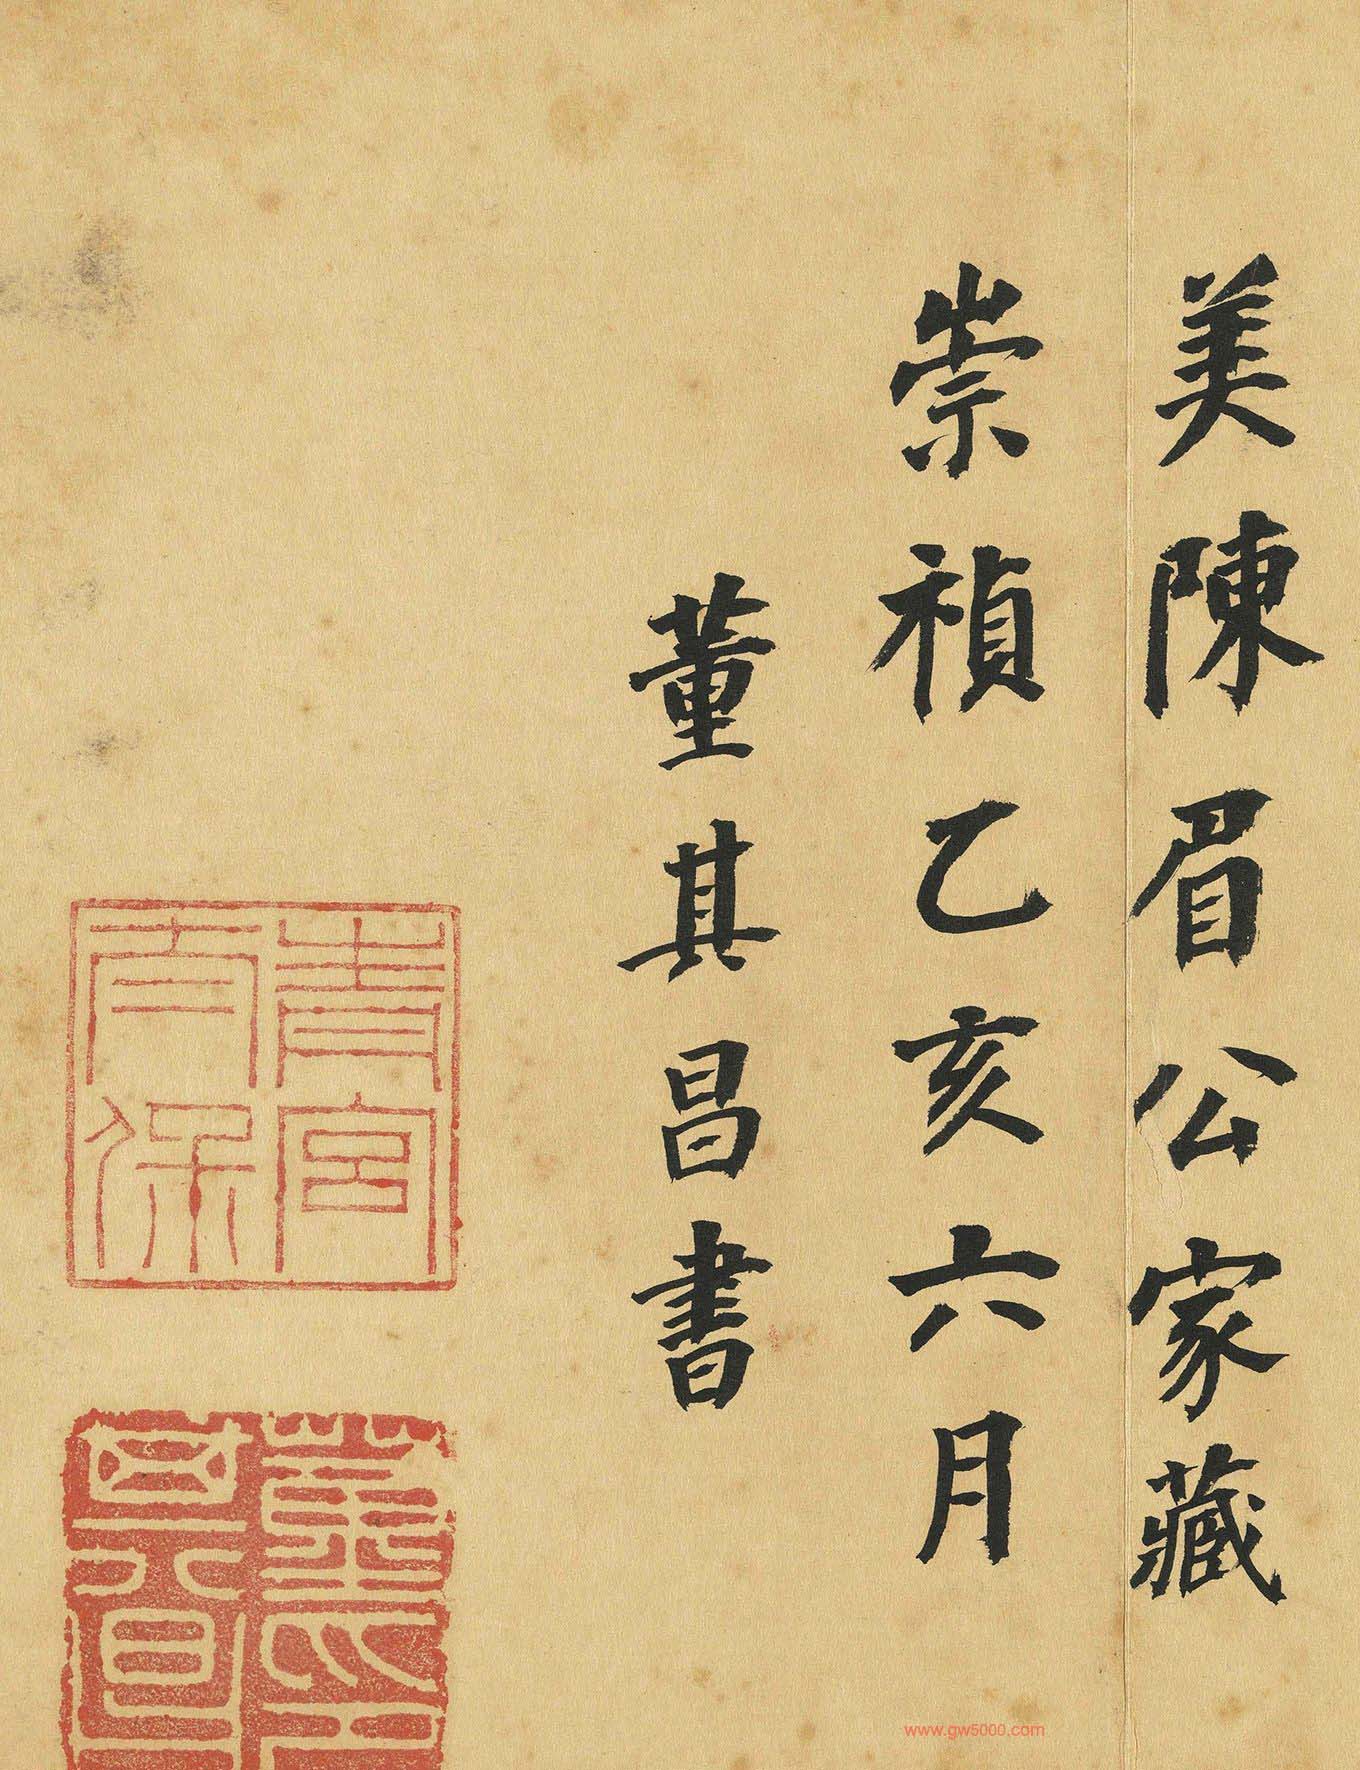 美陳眉公家藏
崇禎乙亥六月
董其昌書
青宮太保
董氏玄宰
www.gw5000.com